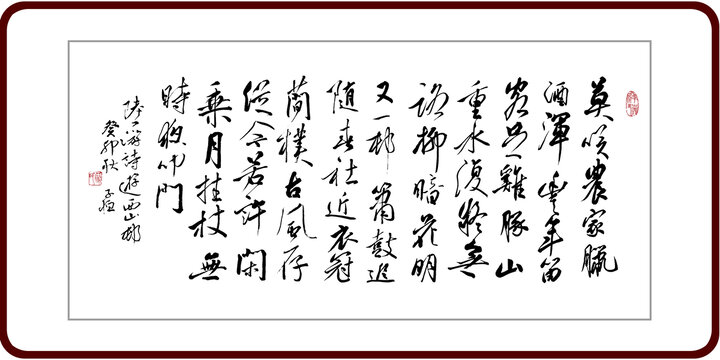 莫笑農家臘
酒渾豐年留
客足雞豚山
重水復疑無
路柳暗花明
又一邨簫鼓追
隨春社近衣冠
簡樸古風存
從今若許閑
乘月拄杖無
時夜叩門
陸游詩遊西山邨
癸卯秋